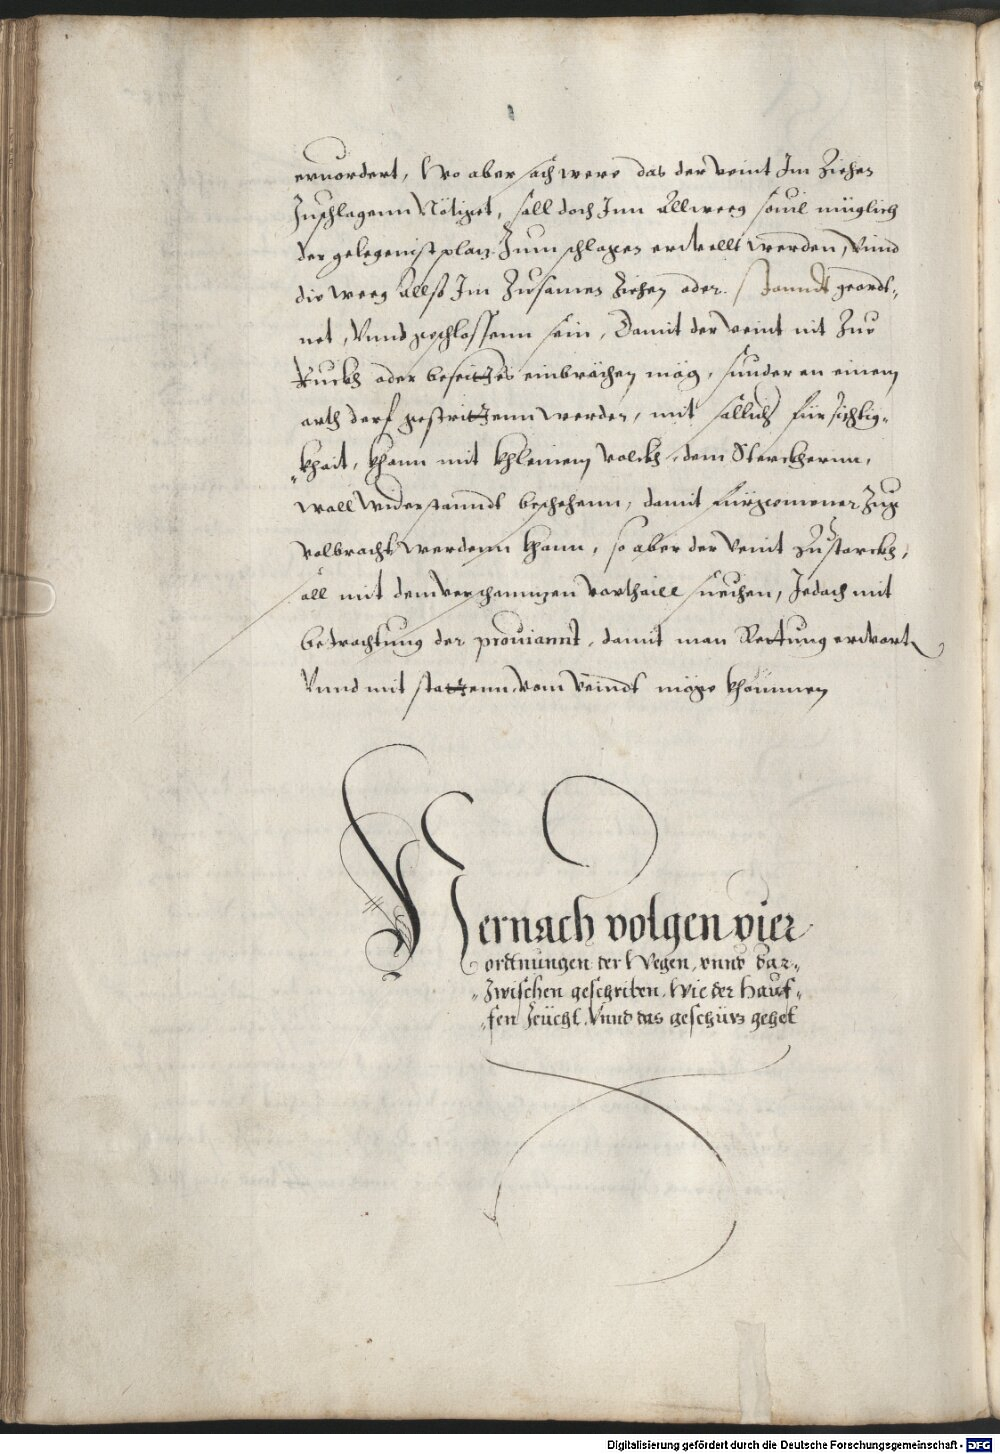 eruordert, Wo aber sach were das der veint Im Ziehen
Zuschlagenn Nötiget, soll doch Inn Allweeg souil müglich
der gelegenist platz Zum schlagen erwellt werden, Vnnd
die weeg Allso Im Zusamen Ziehen oder Stanndt geordt-
net, Vnnd geschlossenn sein, Damit der veint nit Zur
Ruckh oder beseitz einbrächen mög, sunder an einem
orth derf gestrittenn werden, mit sollich fürsichtig-
"khait, khann mit khleinem volckh, dem Sterckhernn,
woll widerstanndt beschehenn, damit fürgenomener Zug
volbracht werdenn khann, so aber der Veint Zustarckh,
soll mit dem verschanntzen vorthaill suechen, Jedoch mit
betrachtung der prouiannt, damit man Rettung erwart
Vnnd mit statenn vom Veindt möge khoummen
Hernach volgen vier
ordtnungen der Wegen, vnnd dar-
"Zwischen geschriben, Wie der Hauf-
"fen Zeücht, Vnnd das geschütz gehet
Digitalisierung gefördert durch die Deutsche Forschungsgemeinschaft - DFG